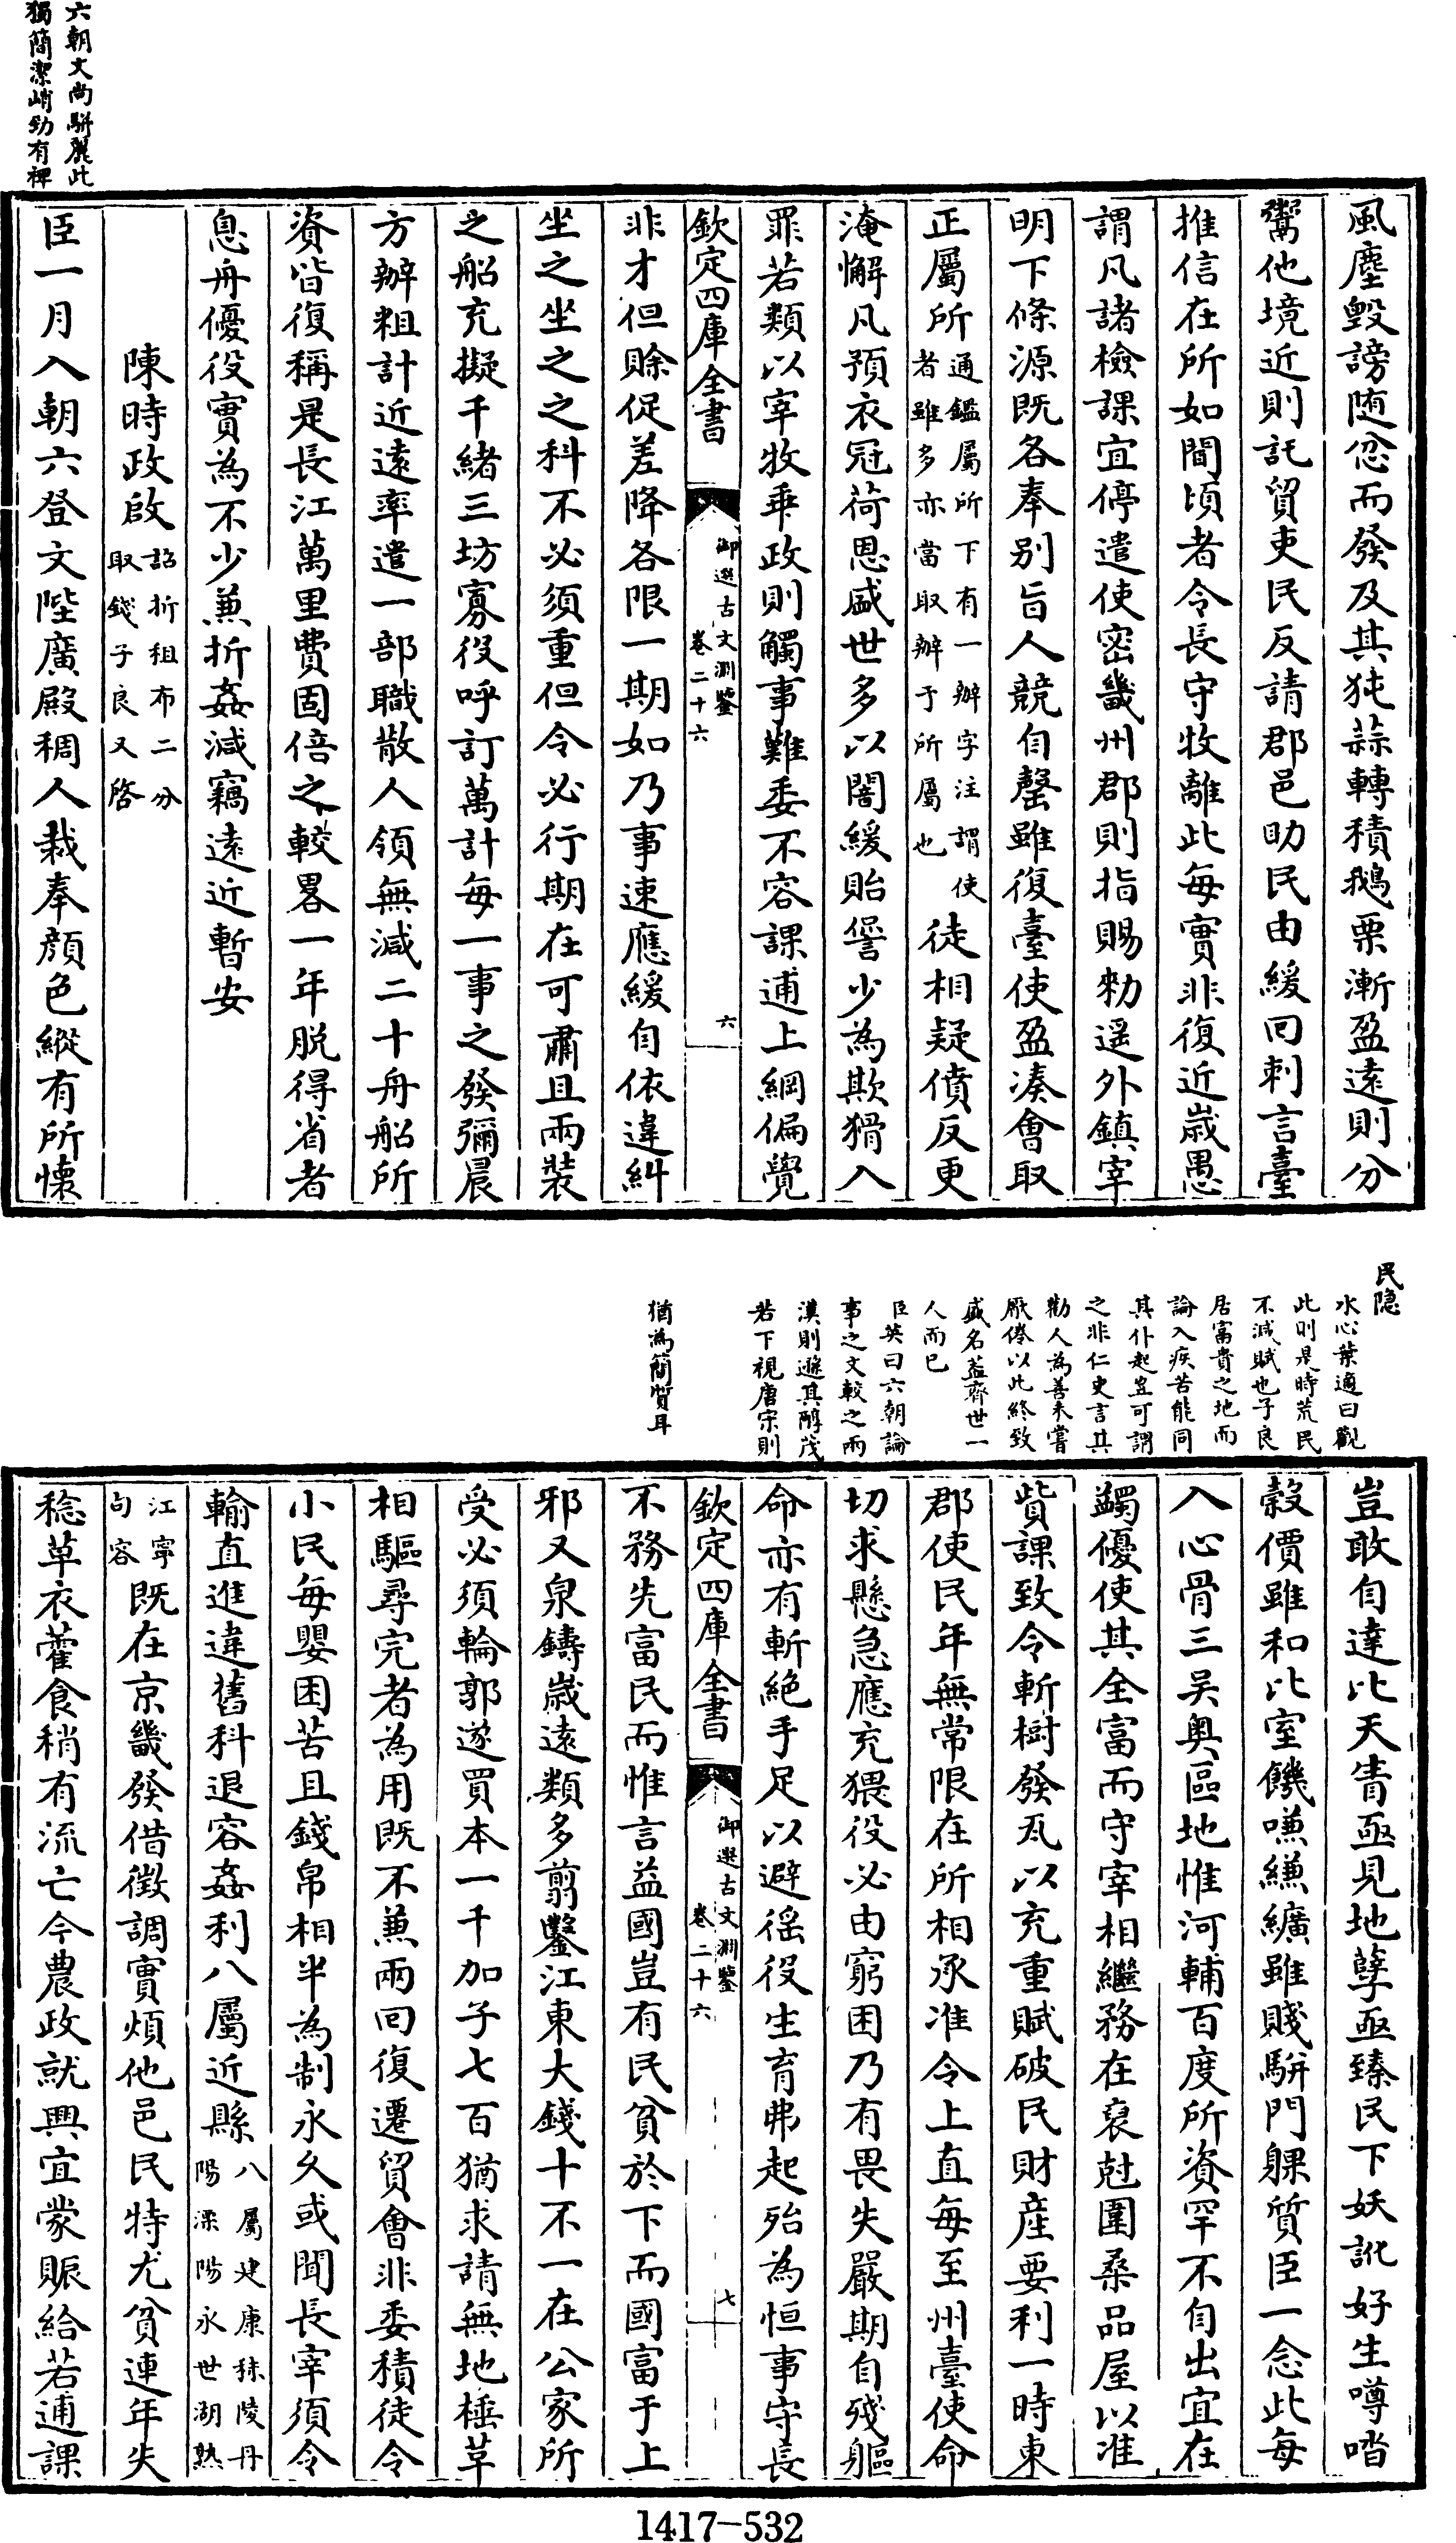 六朝文尚駢麗此
獨簡潔峭勁有裨
風塵毀謗随忿而發及其㹠蒜轉積鵝栗漸盈遠則分
鬻他境近則託貿吏民反請郡邑助民由緩回刺言臺
推信在所如聞頃者令長守牧離此每實非復近嵗愚
謂凡諸檢課宜停遣使密畿州郡則指賜勅遥外鎮宰
明下條源既各奉别旨人競自罄雖復臺使盈凑會取
正屬所通鑑屬所下有一辦字注謂使
者雖多亦當取辦于所屬也徒相疑僨反更
淹懈凡預衣冠荷恩盛世多以闇緩貽諐少為欺猾入
罪若類以宰牧乗政則觸事難委不容課逋上綱偏覺
欽定四庫全書
御選古文淵鑒
卷二十六
六
非才但賒促差降各限一期如乃事速應緩自依違糾
坐之坐之之科不必須重但令必行期在可肅且兩裝
之船充擬千緒三坊寡役呼訂萬計每一事之發彌晨
方辦粗計近遠率遣一部職散人領無減二十舟船所
資皆復稱是長江萬里費固倍之較畧一年脱得省者
息舟優役實為不少兼折姦減竊遠近暫安
陳時政啟詔折租布二分
取錢子良又啓
臣一月入朝六登文陛廣殿稠人裁奉顔色縱有所懷
民隐
水心葉適曰觀
此則是時荒民
不減賦也子良
居富貴之地而
論入疾苦能同
其仆起豈可謂
之非仁史言其
勸人為善未嘗
厭倦以此終致
盛名葢齊世一
人而已
臣英曰六朝論
事之文較之兩
漢則遜其醇茂
若下視唐宋則
猶為簡質耳
豈敢自達比天眚亟見地孽亟臻民下妖訛好生噂㳫
榖價雖和比室饑嗛縑纊雖賤駢門躶質臣一念此每
入心骨三吴奥區地惟河輔百度所資罕不自出宜在
蠲優使其全富而守宰相繼務在裒尅圍桑品屋以准
貲課致令斬樹發瓦以充重賦破民財産要利一時東
郡使民年無常限在所相承准令上直每至州臺使命
切求懸急應充猥役必由窮困乃有畏失嚴期自殘軀
命亦有斬絶手足以避徭役生育弗起殆為恒事守長
欽定四庫全書
御選古文淵鑒
卷二十六
七
不務先富民而惟言益國豈有民貧於下而國富于上
邪又泉鑄嵗遠類多翦鑿江東大錢十不一在公家所
受必須輪郭遂買本一千加子七百猶求請無地棰革
相驅尋完者為用既不兼兩回復遷貿會非委積徒令
小民每嬰困苦且錢帛相半為制永乆或聞長宰須令
輸直進違舊科退容姦利八屬近縣八屬建康秣陵丹
陽溧陽永世湖熟
江寧
句容既在京畿發借徴調實煩他邑民特尤貧連年失
稔草衣藿食稍有流亡今農政就興宜蒙賑給若逋課
1417-532